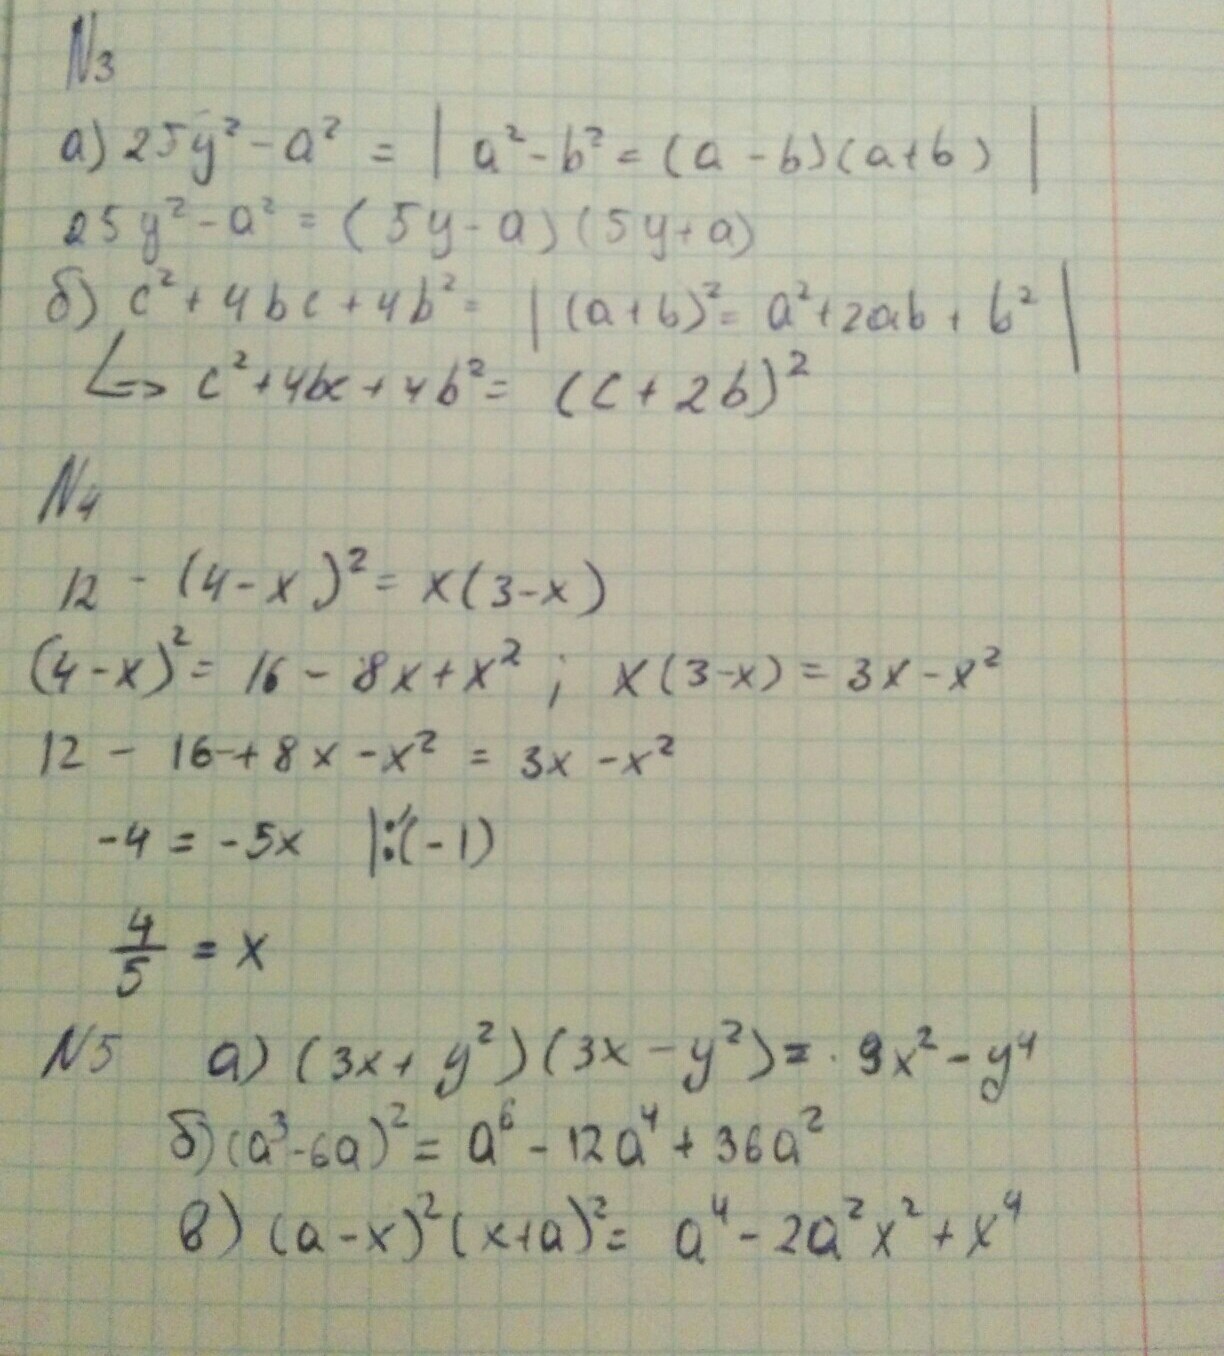 №3
а) 25y² - a² = | a² - b² = (a - b)(a+b) |
25y² - a² = (5y - a)(5y + a)
б) c² + 4bc + 4b² = | (a+b)² = a² + 2ab + b² |
↳ c² + 4bc + 4b² = (c + 2b)²
№4
12 - (4-x)² = x(3-x)
(4-x)² = 16 - 8x + x² ; x(3-x) = 3x - x²
12 - 16 + 8x - x² = 3x - x²
-4 = -5x |:(-1)
4/5 = x
№5 а) (3x + y²)(3x - y²) = 9x² - y⁴
б) (a³-6a)² = a⁶ - 12a⁴ + 36a²
в) (a-x)²(x+a)² = a⁴ - 2a²x² + x⁴